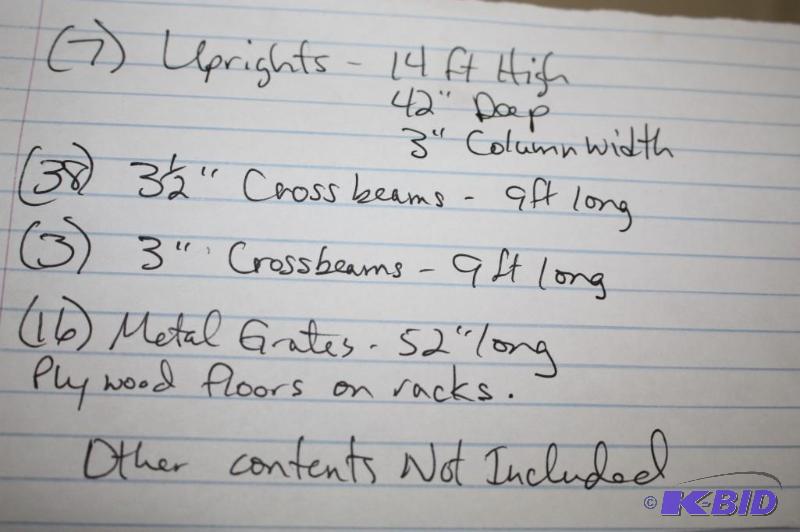 (7) Uprights - 14 ft High
42" Deep
3" Column width
(38) 3½" Cross beams - 9ft long
(3) 3" Crossbeams - 9 ft long
(16) Metal Grates - 52" long
Plywood floors on racks.
Other contents Not Included
© K-BID